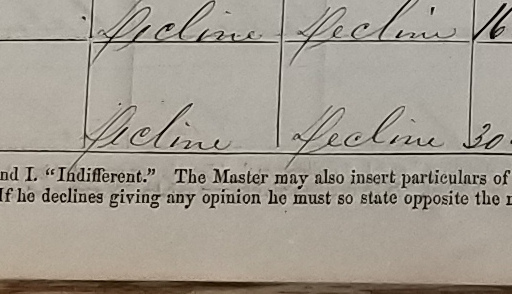 Decline Decline 16
Decline Decline 30
nd I. “Indifferent.” The Master may also insert particulars of
If he declines giving any opinion he must so state opposite the